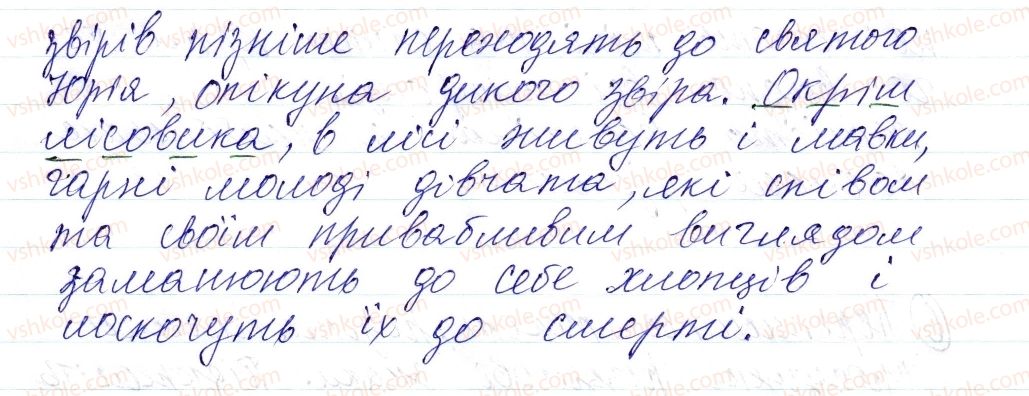 звірів пізніше переходять до святого
Юрія, опікуна дикого звіра. Окрім
лісовика, в лісі живуть і мавки,
гарні молоді дівчата, які співом
та своїм привабливим виглядом
заманюють до себе хлопців і
лоскочуть їх до смерті.